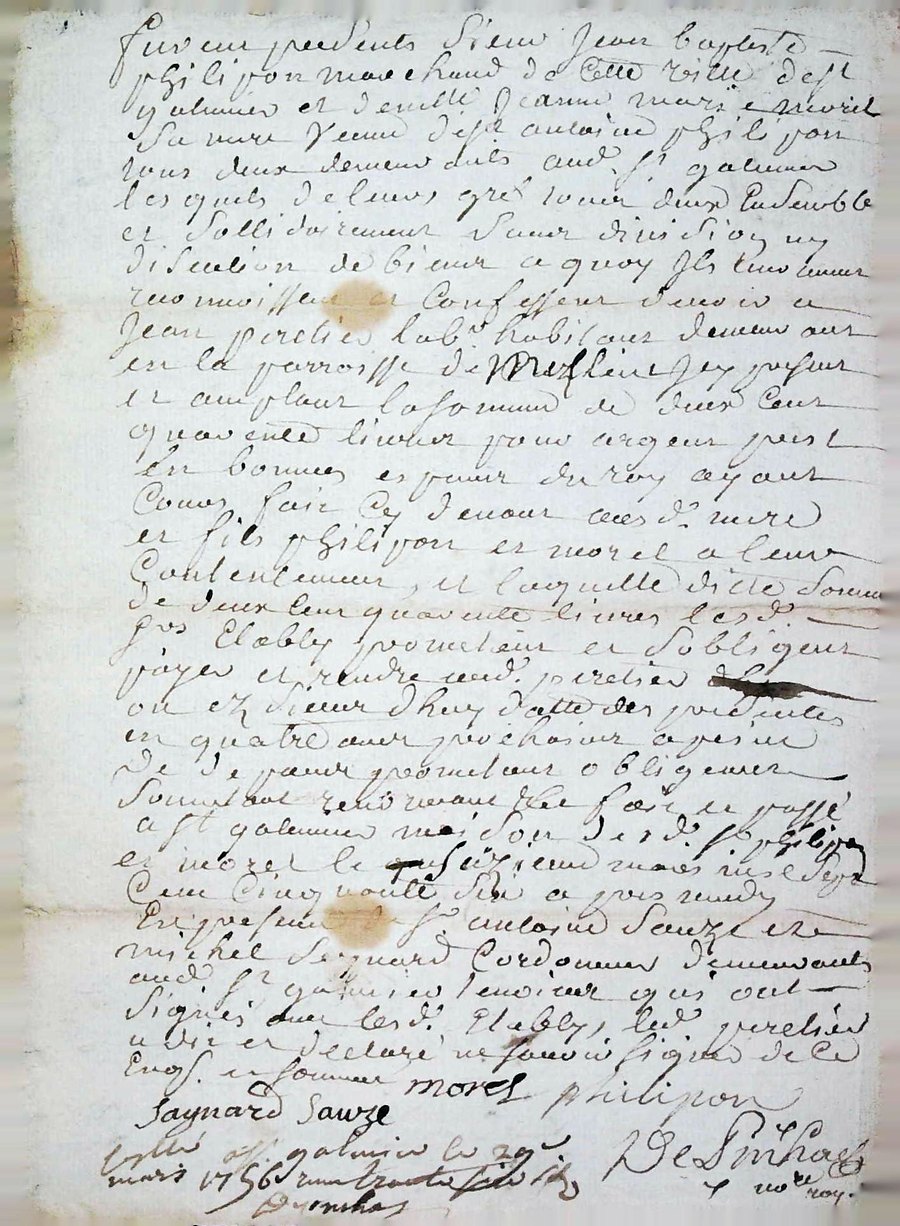 furent presents Sieur Jean baptiste
philipon marchand de Cette ville de st
galmier et demlle Jeanne marie morel
Sa mere veuve de sr antoine philipon
tous deux demeurants aud. st galmier
lesquels de leurs gré tous deux Ensemble
et Sollidairement Sans division ny
discution de biens a quoy Ils renoncent
reconnoissent et Confessent devoir a
Jean peretier labr. habitant demeurant
en la parroisse de Icy present
et acceptant la somme de deux Cent
quarente livres pour argent prest
En bonnes espaces du roy ayant
Cours fait Cy devant auxd. mere
et fils philipon et morel a leur
Contentement, et laquelle ditte Somme
de deux Cent quarente livres lesd.
Etably prometent et Sobligent
payer et rendre aud. peretier
ou es Siens d'huy datte des presentes
en quatre ans prochains a peine
de depans prometant obligeant
Soumetant renoncant fait et passé
a st galmier maison desd. philipon
et morel le mars mil Sept
Cent Cinquante Six a pres midy
En presence de sr. antoine Sauze et
michel Seignard Cordonnier demeurants
aud st galmier temoins qui ont
Signés avec lesd. Etablys, led. peretier
a dit et declaré ne savoir signer de Ce
Enqs. et sommé morel philipon
Saynard Sauze
a st. galmier le 29e
mars 1756
nore roy.